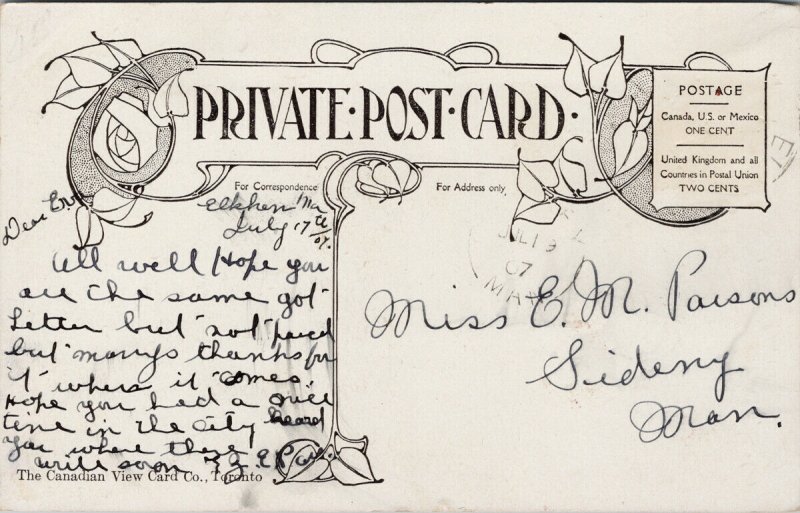 PRIVATE·POST·CARD·
POSTAGE
Canada, U.S. or Mexico
ONE CENT
United Kingdom and all
Countries in Postal Union
TWO CENTS
For Correspondence
For Address only
Elkhorn Man
July 17th/07.
Dear Em
All well Hope you
are the same got
Letter but not parcel
but manys thanks for
it when it comes.
Hope you had a nice
time in the city heard
you where there
write soon
JUL 19
07
MAN
Miss E. M. Parsons
Sideny
Man.
The Canadian View Card Co., Toronto